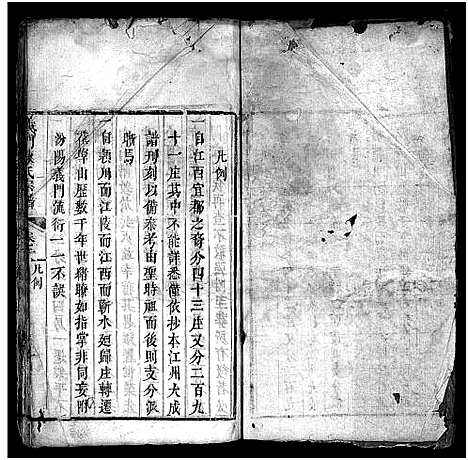 凡例
一自江西宜都之裔分四十三庄又分二百九
十一庄其中不能詳悉僅依抄本江州大成
譜刊刻以備叅考由聖時祖而後則支分派
晰焉
一自潁川而江陵而江西而蘄水廻歸庄轉遷
後阜山歷數千年世緒瞭如指掌非同妄附
汾陽義門流衍一一不誤
義門陳氏宗譜
凡例